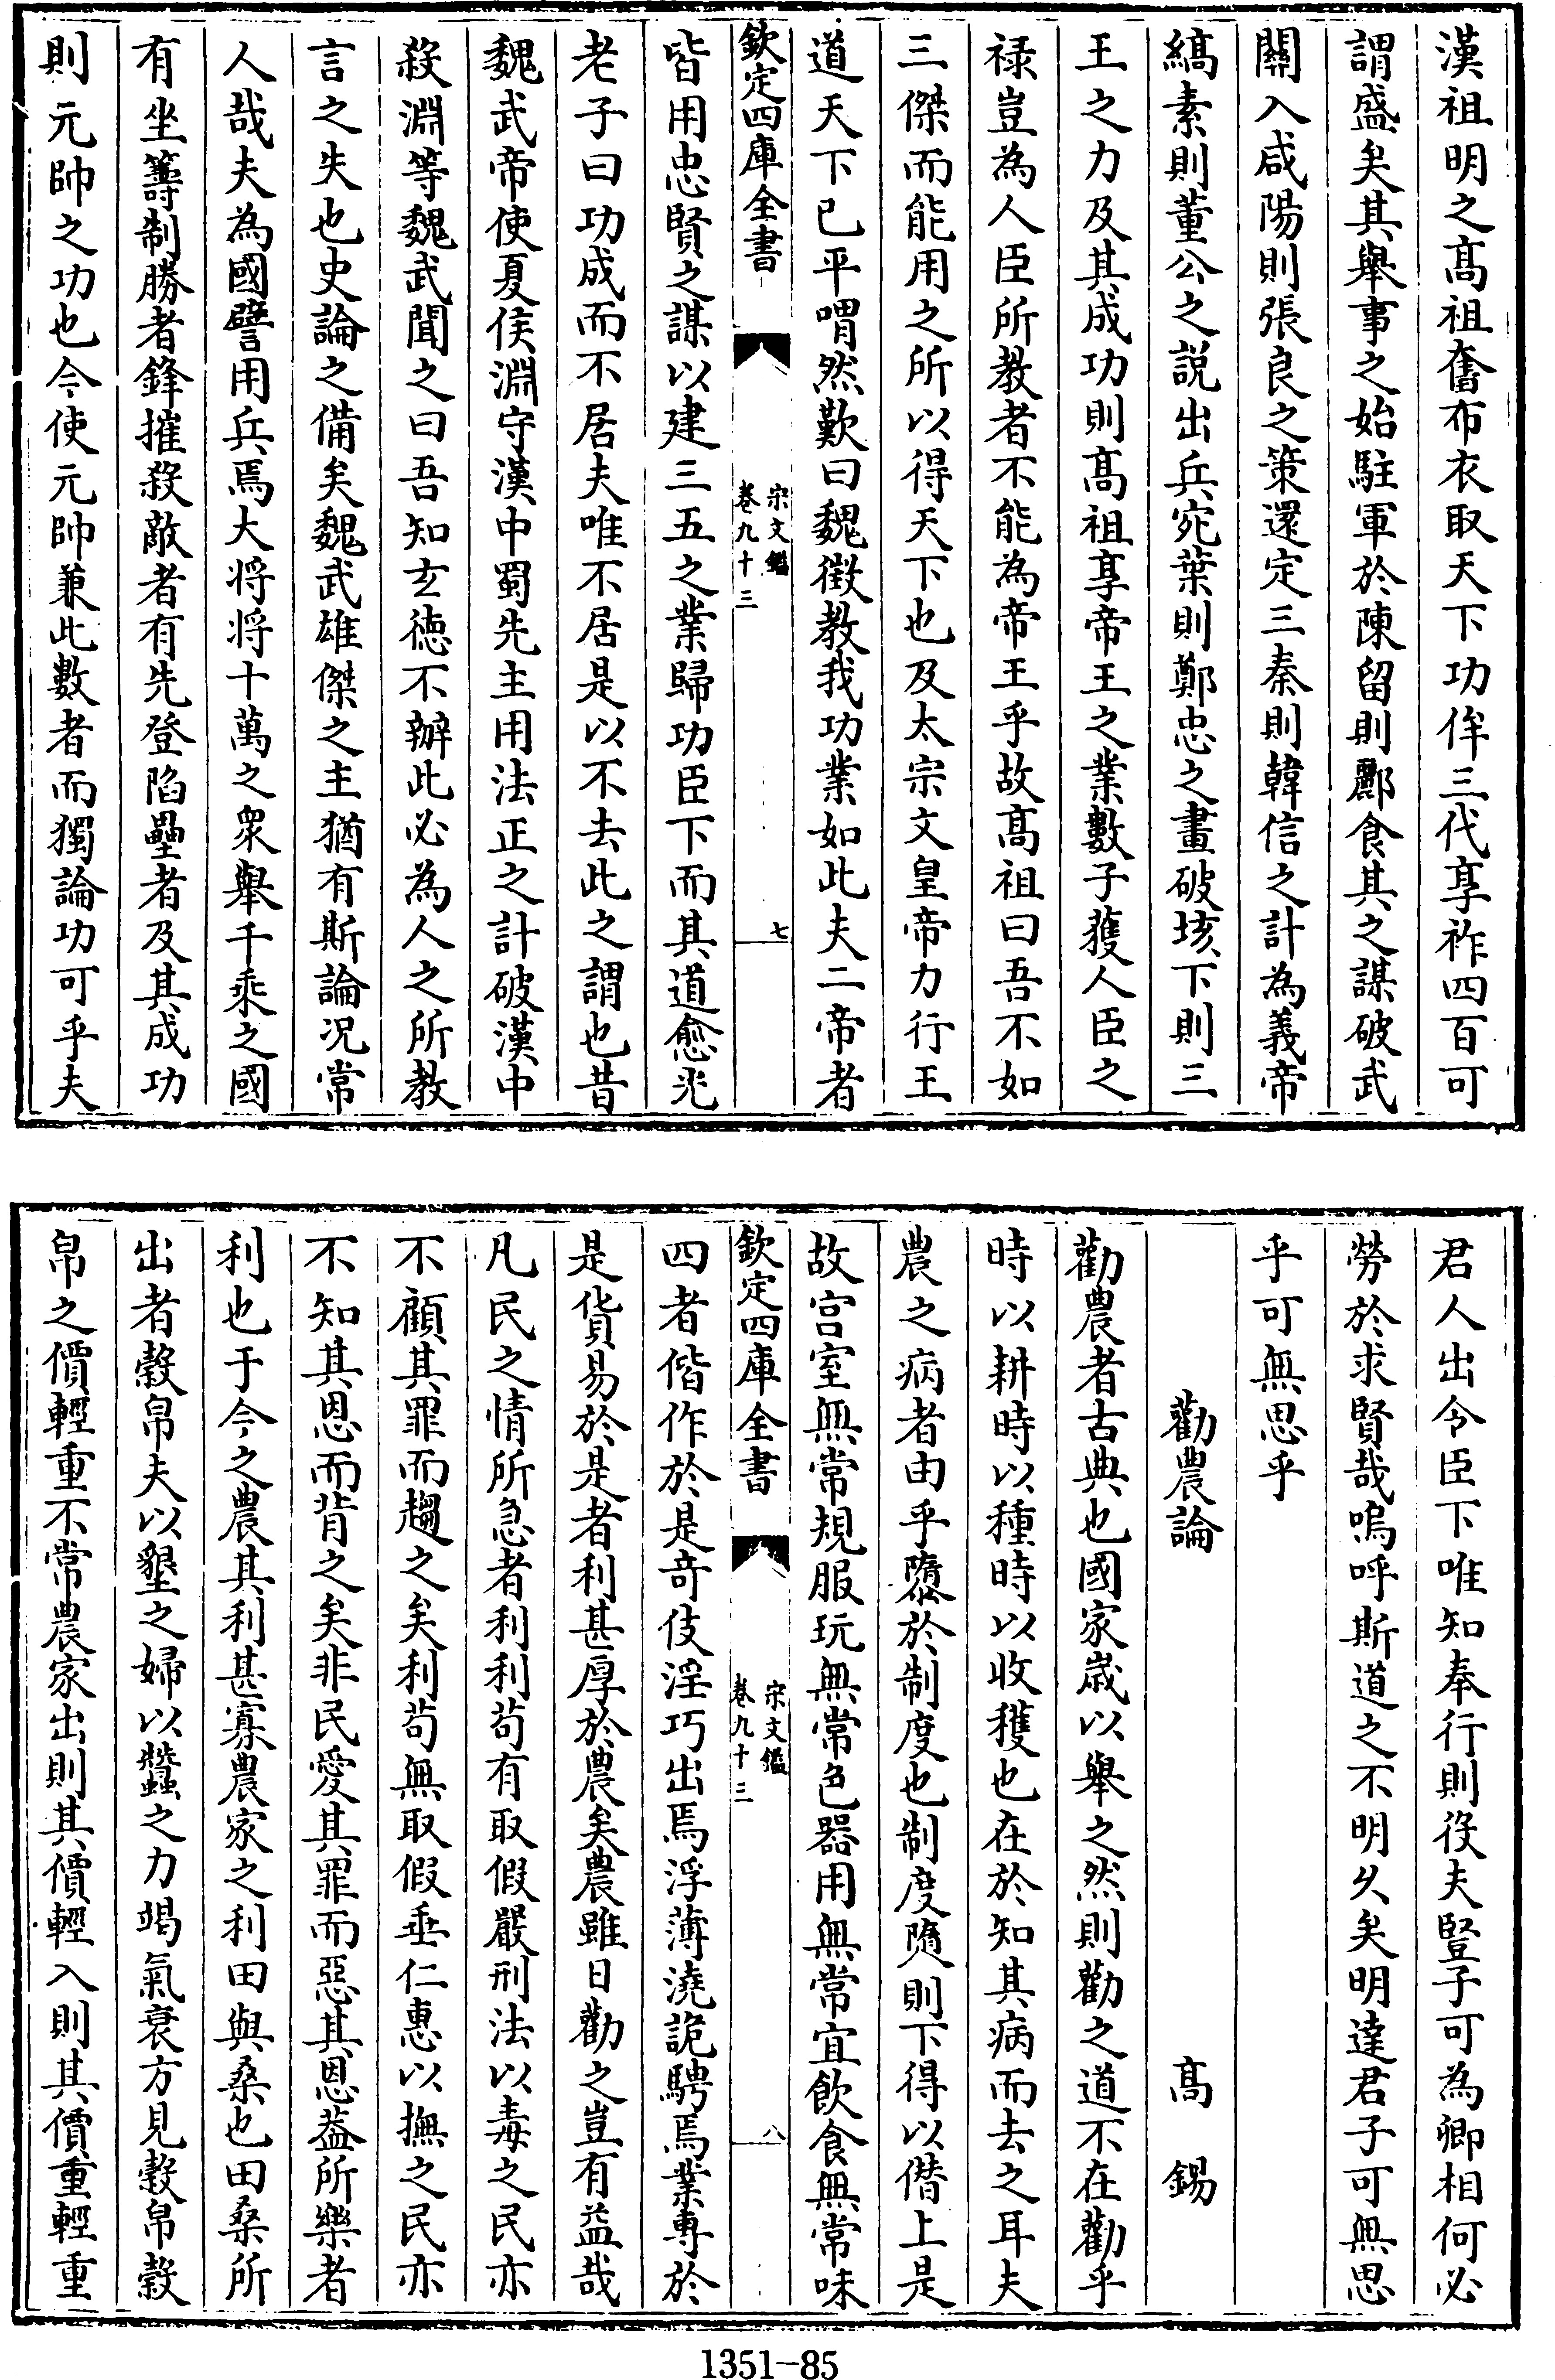 漢祖明之髙祖奮布衣取天下功侔三代享祚四百可
謂盛矣其舉事之始駐軍於陳留則酈食其之謀破武
關入咸陽則張良之策還定三秦則韓信之計為義帝
縞素則董公之説出兵宛葉則鄭忠之畫破垓下則三
王之力及其成功則髙祖享帝王之業數子獲人臣之
禄豈為人臣所教者不能為帝王乎故髙祖曰吾不如
三傑而能用之所以得天下也及太宗文皇帝力行王
道天下已平喟然歎曰魏徴教我功業如此夫二帝者
欽定四庫全書
宋文鑑
卷九十三
七
皆用忠賢之謀以建三五之業歸功臣下而其道愈光
老子曰功成而不居夫唯不居是以不去此之謂也昔
魏武帝使夏侯淵守漢中蜀先主用法正之計破漢中
殺淵等魏武聞之曰吾知玄徳不辦此必為人之所教
言之失也史論之備矣魏武雄傑之主猶有斯論况常
人哉夫為國譬用兵焉大将将十萬之衆舉千乘之國
有坐籌制勝者鋒摧殺敵者有先登陷壘者及其成功
則元帥之功也今使元帥兼此數者而獨論功可乎夫
君人出令臣下唯知奉行則役夫豎子可為卿相何必
勞於求賢哉嗚呼斯道之不明乆矣明達君子可無思
乎可無思乎
勸農論
髙錫
勸農者古典也國家嵗以舉之然則勸之道不在勸乎
時以耕時以種時以收穫也在於知其病而去之耳夫
農之病者由乎隳於制度也制度隳則下得以僣上是
故宫室無常規服玩無常色器用無常宜飲食無常味
欽定四庫全書
宋文鑑
卷九十三
八
四者偕作於是竒伎淫巧出焉浮薄澆詭騁焉業專於
是貨易於是者利甚厚於農矣農雖日勸之豈有益哉
凡民之情所急者利利苟有取假嚴刑法以毒之民亦
不顧其罪而趨之矣利苟無取假垂仁惠以撫之民亦
不知其恩而背之矣非民愛其罪而惡其恩葢所樂者
利也于今之農其利甚寡農家之利田與桑也田桑所
出者糓帛夫以墾之婦以蠶之力竭氣衰方見糓帛糓
帛之價輕重不常農家出則其價輕入則其價重輕重
1351—85